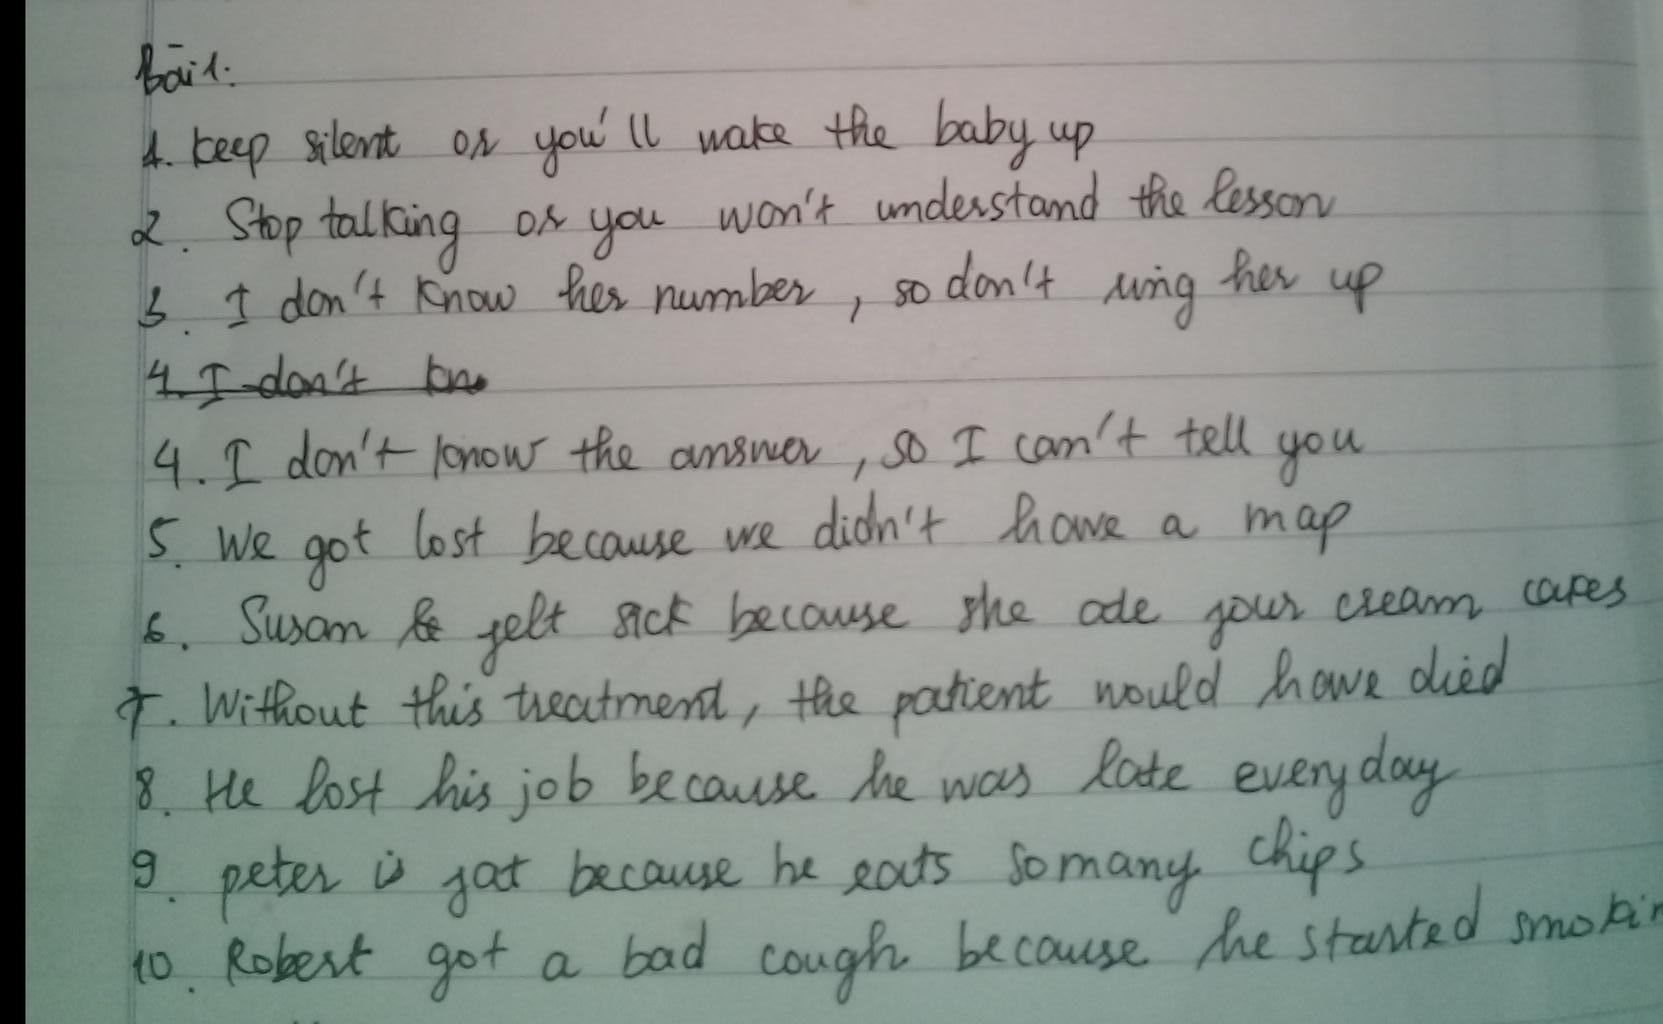 Bài 1:
1. keep silent or you'll wake the baby up
2. Stop talking or you won't understand the lesson
3. I don't know her number, so don't ring her up
4. I don't kn
4. I don't know the answer, so I can't tell you
5. We got lost because we didn't have a map
6. Susan felt sick because she ade four cream cakes
7. Without this treatment, the patient would have died
8. He lost his job because he was late everyday
9. peter is fat because he eats so many chips
10. Robert got a bad cough because he started smokin